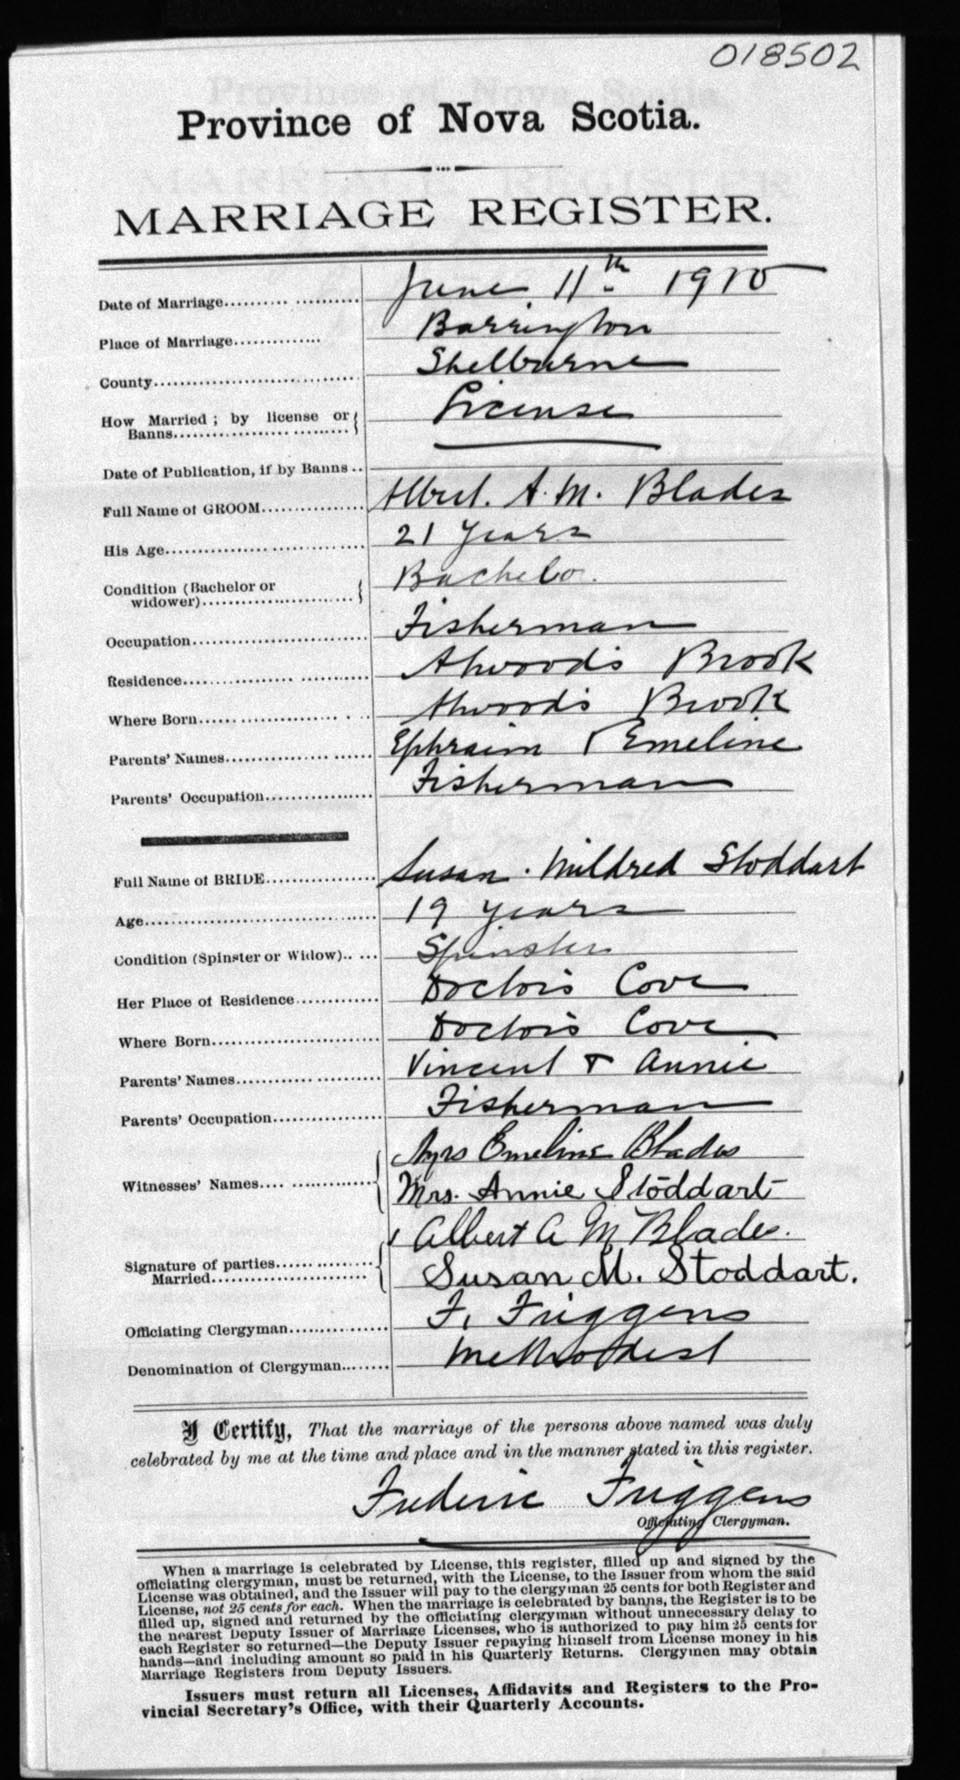 018502
Province of Nova Scotia.
MARRIAGE REGISTER.
Date of Marriage.................... June 11th 1910
Place of Marriage............. Barrington
County.............................. Shelburne
How Married; by license or Banns.............................. License
Date of Publication, if by Banns..
Full Name of GROOM............... Albert. A. M. Blades
His Age.............................. 21 years
Condition (Bachelor or widower)......................... Bachelor
Occupation......................... Fisherman
Residence......................... Atwood's Brook
Where Born......................... Atwood's Brook
Parents' Names..................... Ephraim & Emeline
Parents' Occupation................ Fisherman
Full Name of BRIDE................ Susan. Mildred Stoddart
Age................................ 19 years
Condition (Spinster or Widow)..... Spinster
Her Place of Residence............ Doctor's Cove
Where Born......................... Doctor's Cove
Parents' Names..................... Vincent & Annie
Parents' Occupation................ Fisherman
Witnesses' Names.... ............. Mrs Emeline Blades
Mrs. Annie Stoddart
Signature of parties Married......................... Albert A M Blades.
Susan M. Stoddart.
Officiating Clergyman............... F. Friggens
Denomination of Clergyman........ Methodist
I Certify, That the marriage of the persons above named was duly
celebrated by me at the time and place and in the manner stated in this register.
Frederic Friggens
Officiating Clergyman.
When a marriage is celebrated by License, this register, filled up and signed by the
officiating clergyman, must be returned, with the License, to the Issuer from whom the said
License was obtained, and the Issuer will pay to the clergyman 25 cents for both Register and
License, not 25 cents for each. When the marriage is celebrated by banns, the Register is to be
filled up, signed and returned by the officiating clergyman without unnecessary delay to
the nearest Deputy Issuer of Marriage Licenses, who is authorized to pay him 25 cents for
each Register so returned—the Deputy Issuer repaying himself from License money in his
hands—and including amount so paid in his Quarterly Returns. Clergymen may obtain
Marriage Registers from Deputy Issuers.
Issuers must return all Licenses, Affidavits and Registers to the Pro-
vincial Secretary's Office, with their Quarterly Accounts.